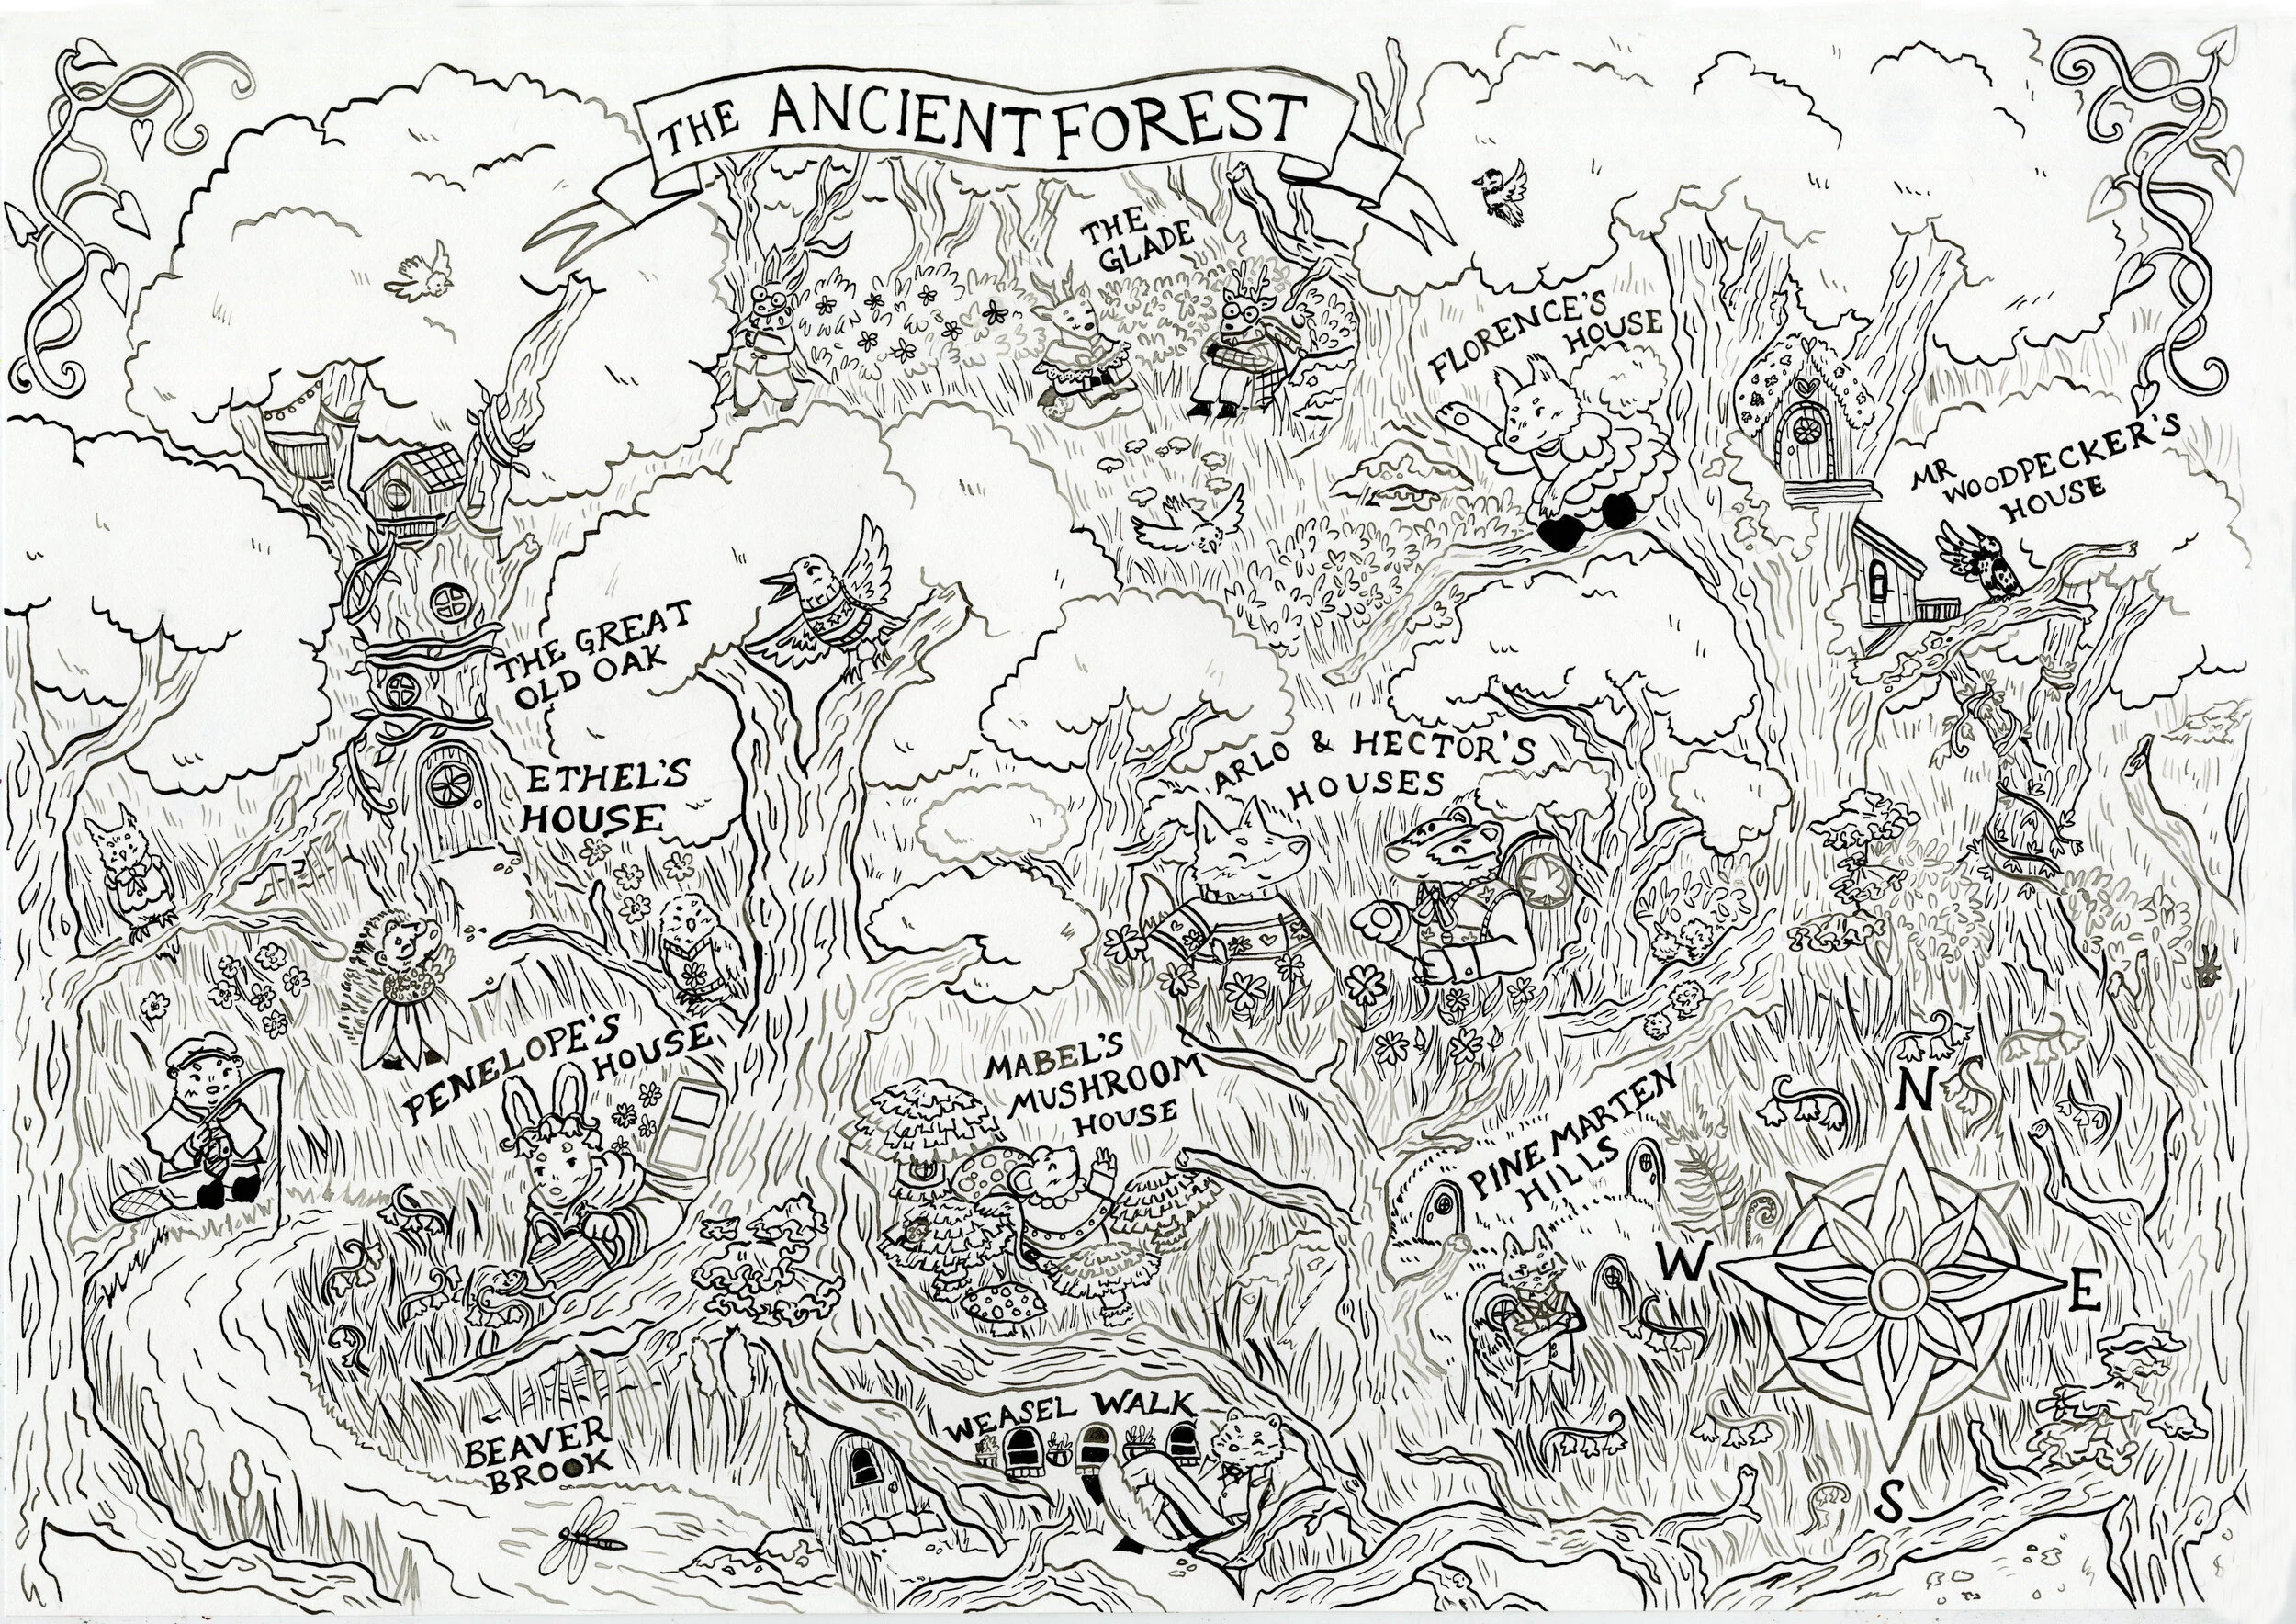 THE ANCIENT FOREST
THE
GLADE
FLORENCE'S
HOUSE
MR
WOODPECKER'S
HOUSE
THE GREAT
OLD OAK
ETHEL'S
HOUSE
ARLO & HECTOR'S
HOUSES
PENELOPE'S
HOUSE
MABEL'S
MUSHROOM
HOUSE
PINE MARTEN
HILLS
N
W
E
S
WEASEL WALK
BEAVER
BROOK